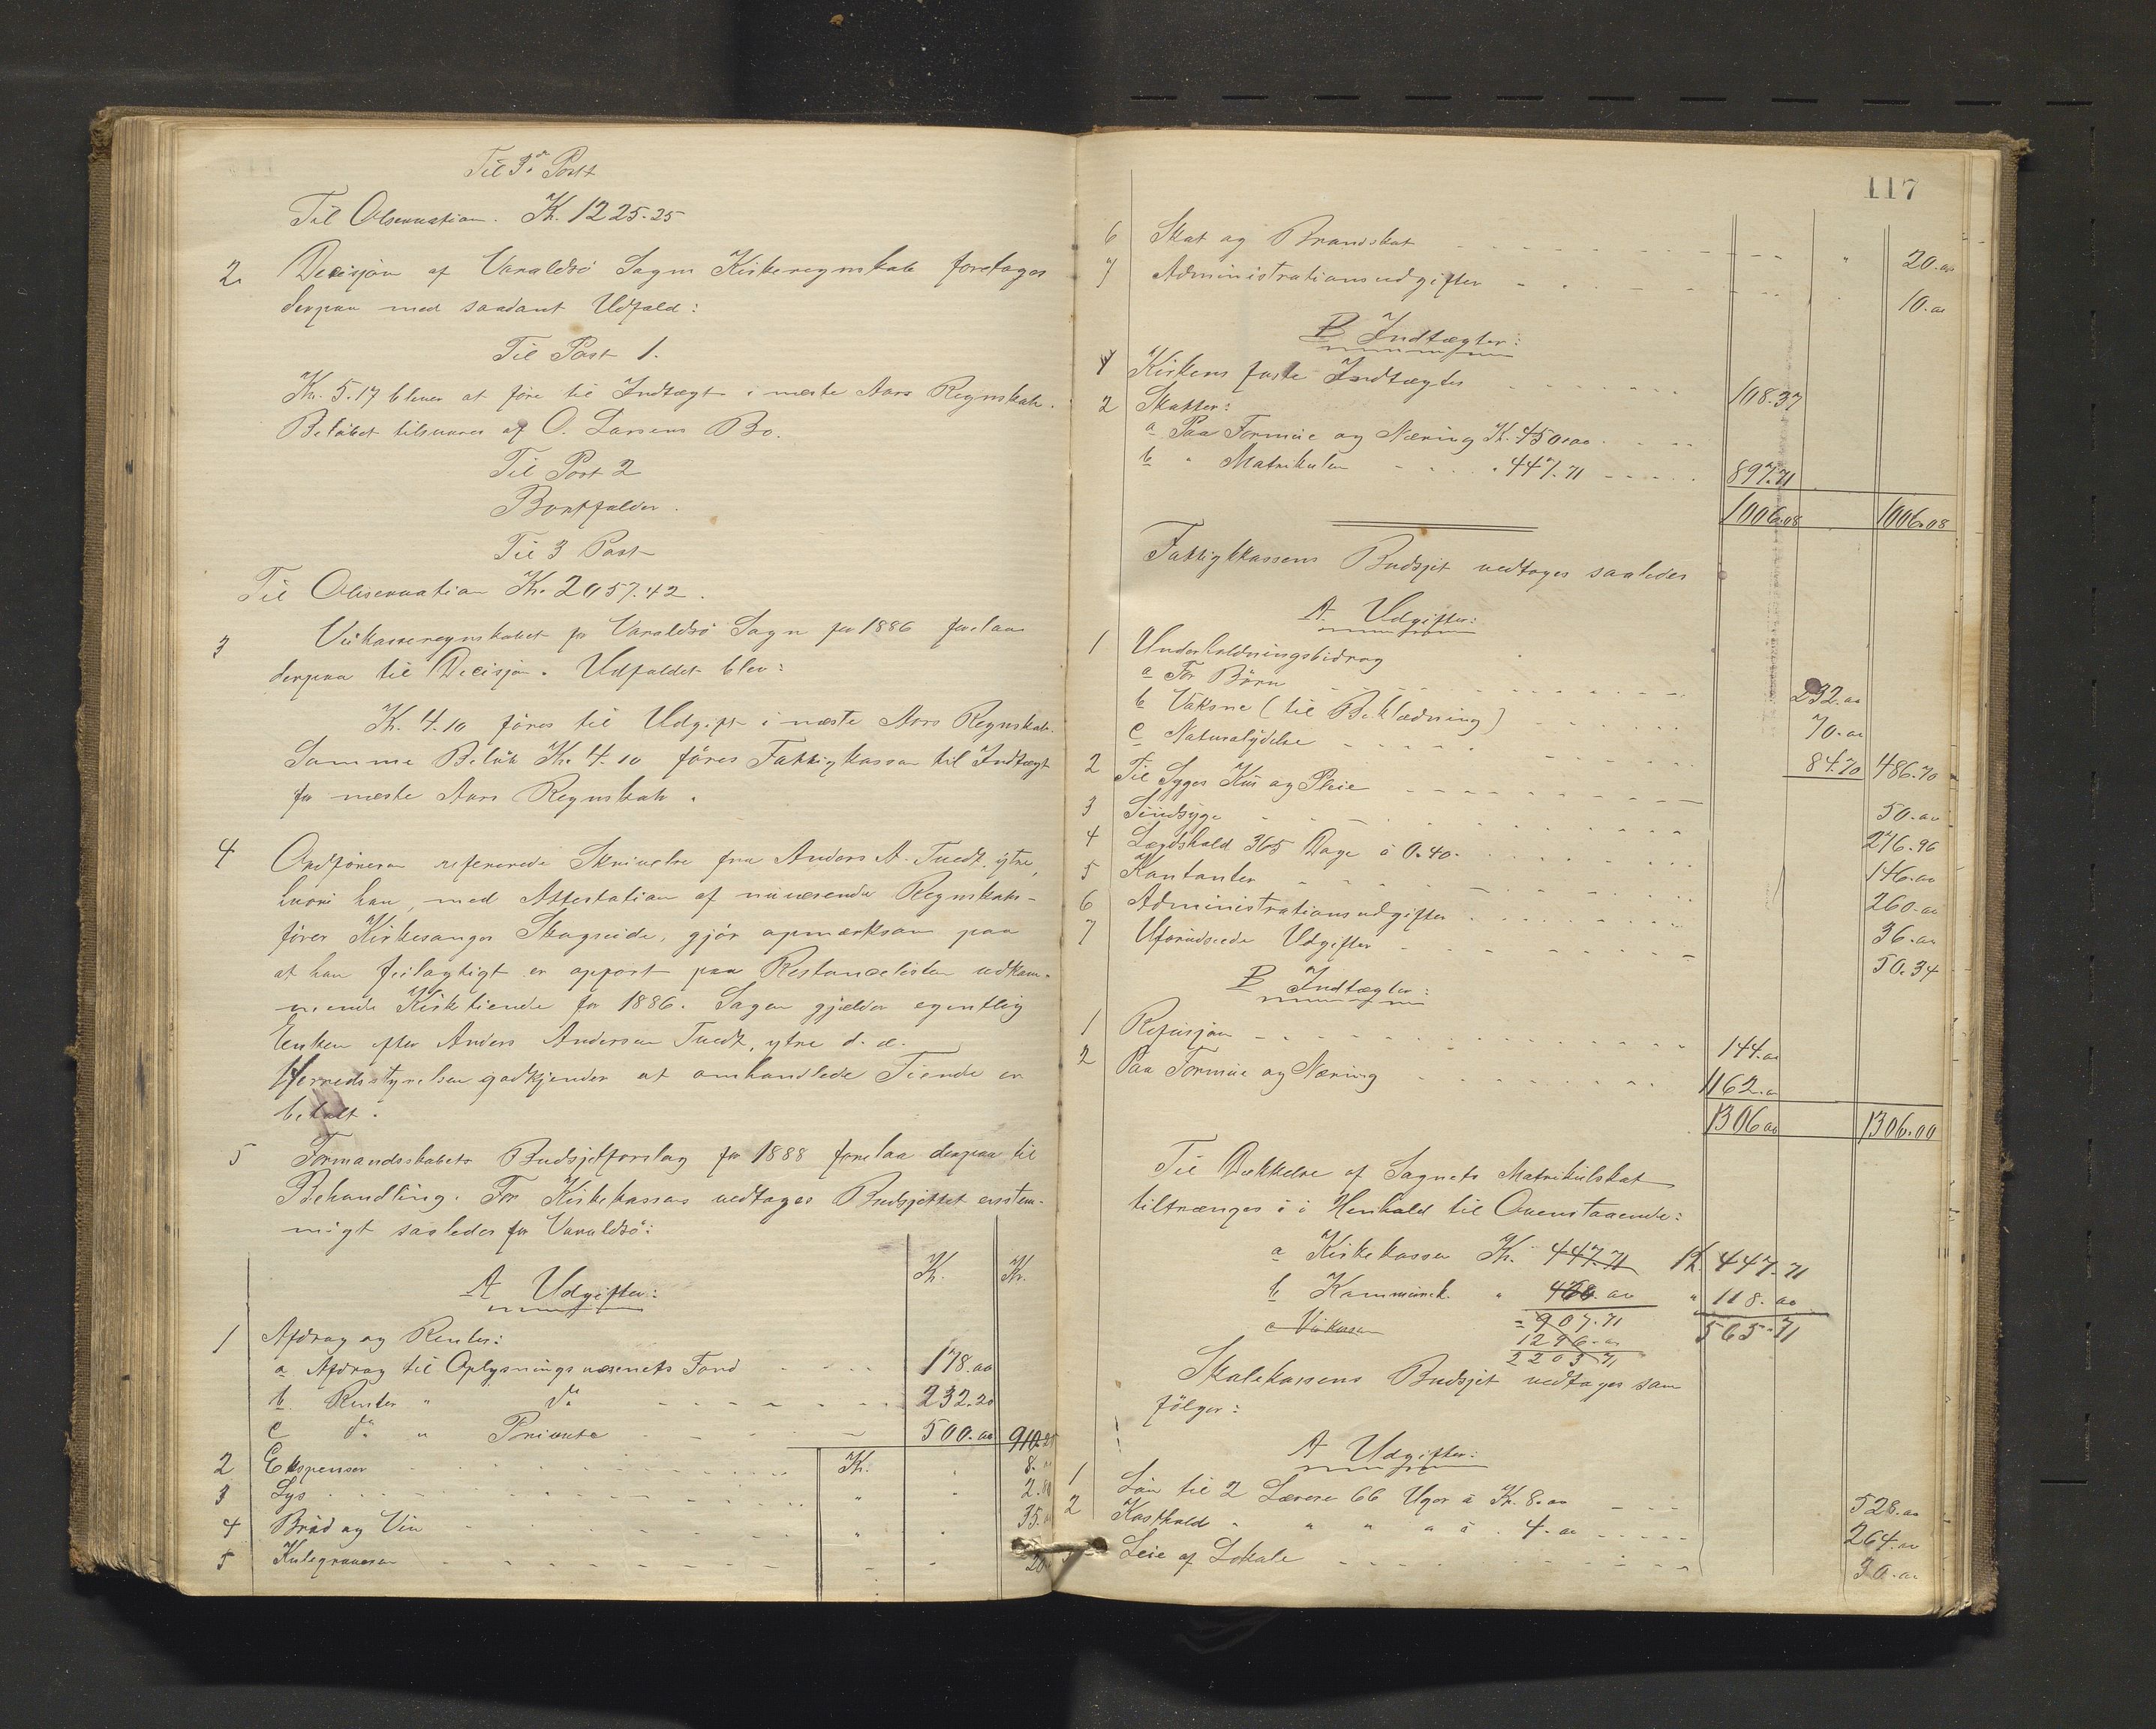 Til 3die Post
Til Observation. Kr. 1225.25
2. Decisjon af Varaldsö Sogns Kirkeregnskab foretoges
derpaa med saadant Udfald:
Til Post 1.
Kr. 5.17 bliver at före til Indtægt i næste Aars Regnskab.
Belöbet tilsvares af O. Larsens Bo.
Til Post 2
Bortfalder.
Til 3 Post
Til Observation Kr. 2057.42.
3 Veikasseregnskabet for Varaldsö Sogn for 1886 forelaa
derpaa til Decisjon. Udfaldet blev:
Kr. 4.10 föres til Udgift i næste Aars Regnskab.
Samme Belöb Kr. 4.10 föres Fattigkassen til Indtægt
for næste Aars Regnskab.
4 Ordföreren refererede Skrivelse fra Anders A. Tvedt, ytre,
hvori han, med Attestation af nuværende Regnskabs-
förer Kirkesanger Skogseide, gjör opmærksom paa
at han feilagtigt er opport paa Restancelisten vedkom-
mende Kirketiende for 1886. Sagen gjælder egentlig
Enken efter Anders Andersen Tvedt, ytre d. æ.
Herredsstyrelsen godkjender at omhandlede Tiende er
betalt.
5 Formandsskabets Budsjetforslag for 1888 forelaa derpaa til
Behandling. For Kirkekassen vedtoges Budsjettet enstem-
migt saaledes for Varaldsö:
A Udgifter: Kr. Kr.
1 Afdrag og Renter:
a Afdrag til Oplysningsvæsenets Fond 178.00
b. Renter " do 232.20
c do " Private 500.00 910.20
2 Expenser Kr. 8.
3 Lys " 2.80
4 Bröd og Vin " 35.
5 Kulegraveren 20
117
6 Skat og Brandskat " 20.00
7 Administrationsudgifter 10.00
B Indtægter:
1 Kirkens faste Indtægter 108.37
2 Skatter:
a Paa Formue og Næring Kr. 450.00
b " Matrikulen " 447.71 897.71
1006.08 1006.08
Fattigkassens Budsjet vedtoges saaledes
A. Udgifter:
1 Underholdningsbidrag
a For Börn 232.00
b Voksne (til Beklædning) 70.00
c Naturalydelse 84.70 486.70
2 Til Syges Kur og Pleie 50.00
3 Sindsyge 276.96
4 Lægdshold 365 Dage á 0.40. 146.00
5 Kontanter 260.00
6 Administrationsudgifter 36.00
7 Uforudseede Udgifter 50.34
B Indtægter:
1 Refusjon 144.00
2 Paa Formue og Næring 1162.00
1306.00 1306.00
Til Dækkelse af Sognets Matrikulskat
tiltrænges i Henhold til Ovenstaaende:
a Kirkekassen Kr. 447.71 Kr. 447.71
b Kommunek. " 460.00 " 118.00
c Veikassen = 907.71 565.71
1296.00
2203.71
Skolekassens Budsjet vedtoges som
fölger:
A Udgifter:
1 Lön til 2 Lærere 66 Uger á Kr. 8.00 528.00
2 Kosthold " " " á " 4.00 264.00
3 Leie af Lokale 30.00